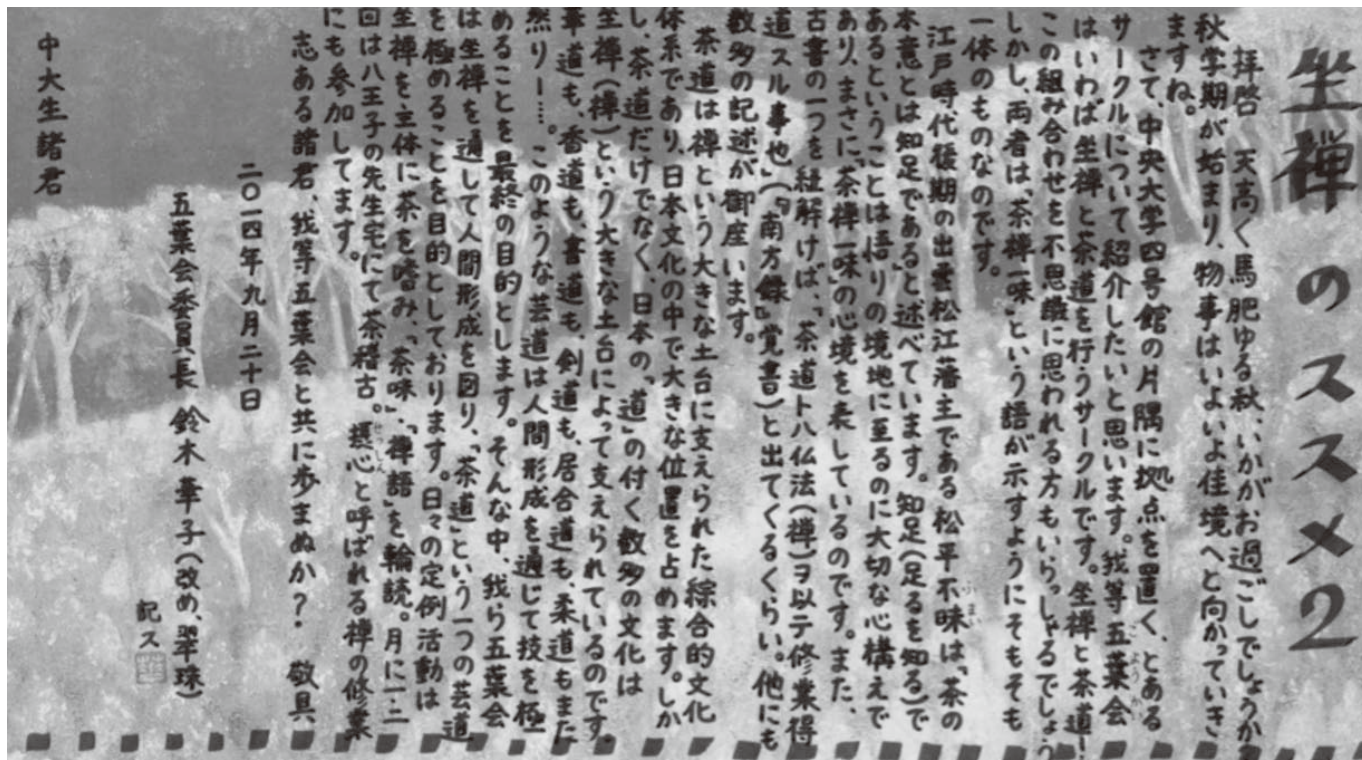 坐禅のススメ2
拝啓　天高く馬肥ゆる秋、いかがお過ごしでしょうか？
秋学期が始まり、物事はいよいよ佳境へと向かっていき
ますね。
さて、中央大学四号館の片隅に拠点を置く、とある
サークルについて紹介したいと思います。我等五葉会
はいわば坐禅と茶道を行うサークルです。坐禅と茶道！
この組み合わせを不思議に思われる方もいらっしゃるでしょう
しかし、両者は、「茶禅一味」という語が示すようにそもそも
一体のものなのです。
江戸時代後期の出雲松江藩主である松平不昧は、「茶の
本意とは知足である」と述べています。知足（足るを知る）で
あるということは悟りの境地に至るのに大切な心構えで
あり、まさに「茶禅一味」の心境を表しているのです。また、
古書の一つを紐解けば、「茶道ト八仏法（禅）ヲ以テ修業得
道スル事也」（『南方録』覚書）と出てくるくらい。他にも
数多の記述が御座います。
茶道は禅という大きな土台に支えられた綜合的文化
体系であり、日本文化の中で大きな位置を占めます。しか
し、茶道だけでなく、日本の「道」の付く数多の文化は
坐禅（禅）という大きな土台によって支えられているのです。
華道も、香道も、書道も、剣道も、居合道も、柔道もまた
然りー……。このような芸道は人間形成を通じて技を極
めることを最終の目的とします。そんな中、我ら五葉会
は坐禅を通して人間形成を図り、「茶道」という一つの芸道
を極めることを目的としております。日々の定例活動は
坐禅を主体に茶を嗜み、「茶味」・「禅語」を輪読。月に一・二
回は八王子の先生宅にて茶稽古。摂心と呼ばれる禅の修業
にも参加してます。
志ある諸君、我等五葉会と共に歩まぬか？　敬具
二〇一四年九月二十日
五葉会委員長　鈴木華子（改め、翠珠）
記ス
中大生諸君